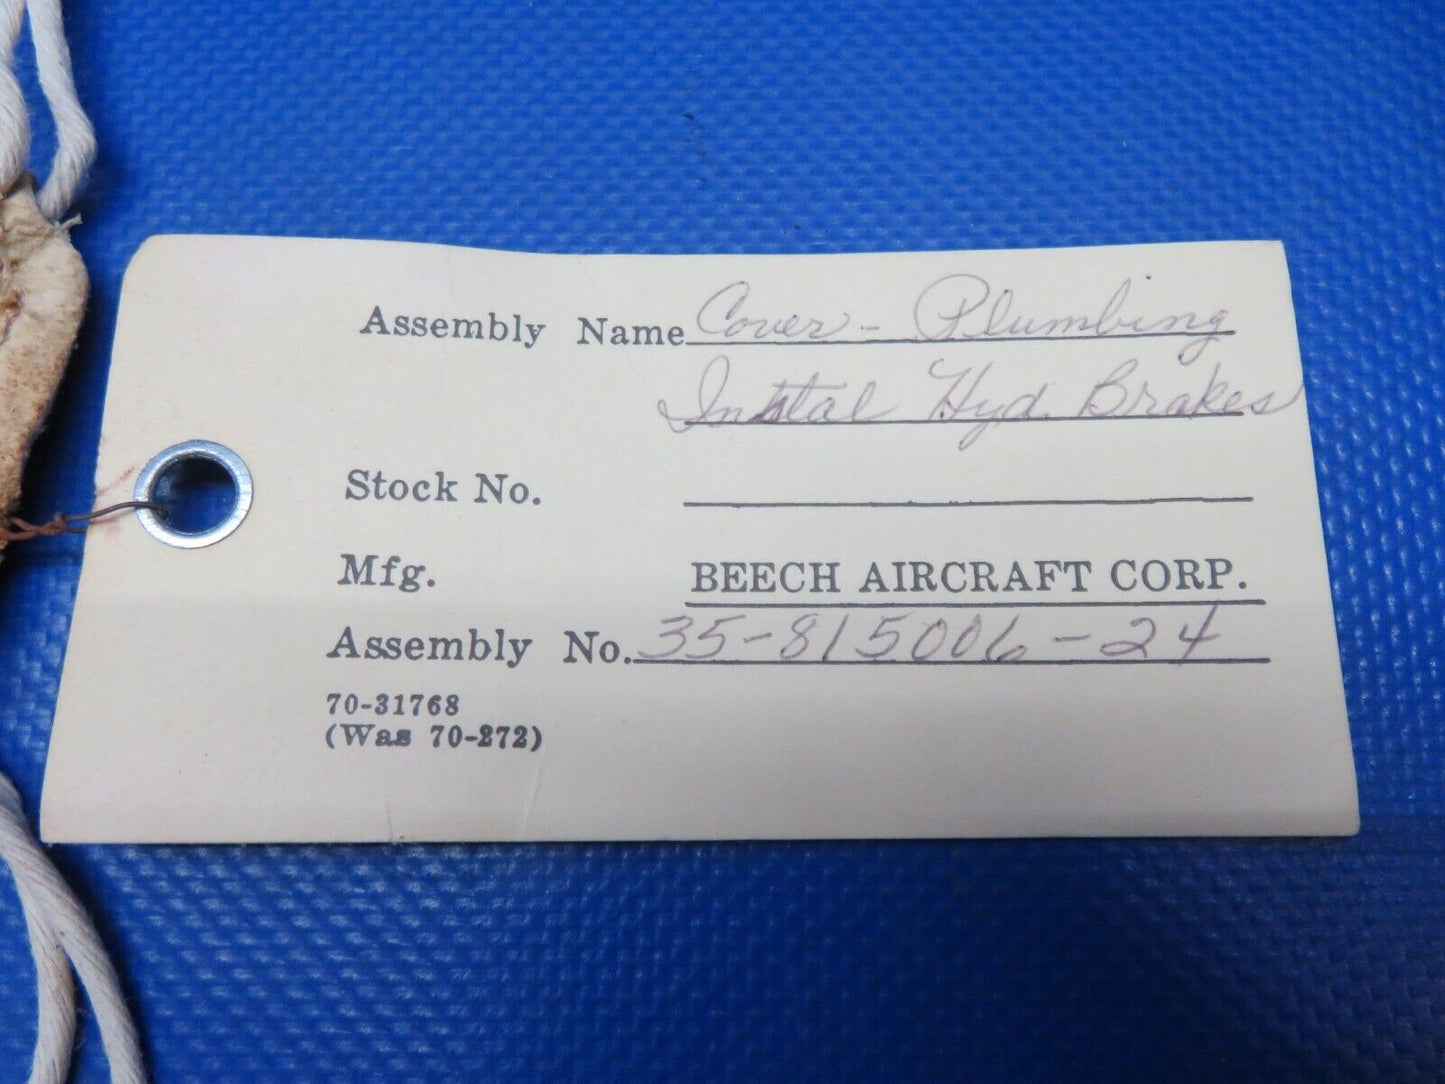 Assembly Name Cover - Plumbing
Instal Hyd. Brakes
Stock No.
Mfg. BEECH AIRCRAFT CORP.
Assembly No. 35-815006-24
70-31768
(Was 70-272)